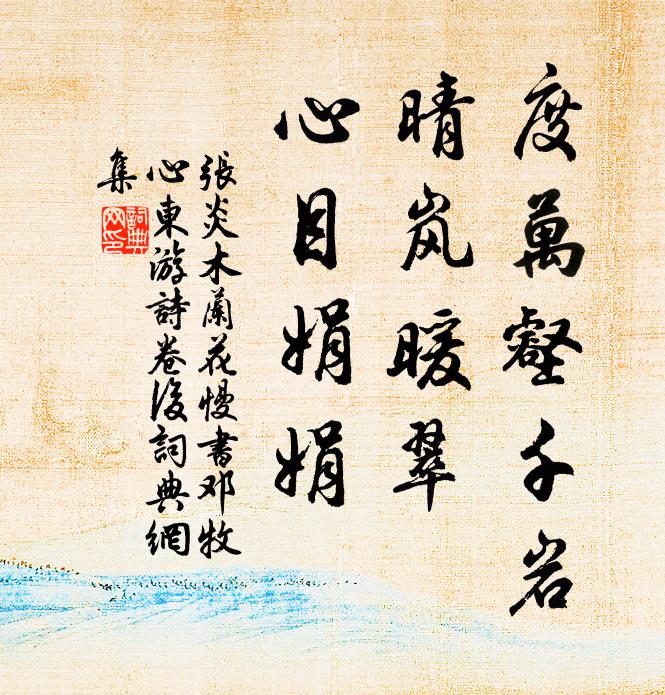 度萬壑千岩
晴岚暖翠
心目娟娟
張炎木蘭花慢書邓牧
心東游詩卷後詞典網
集
詞典
网印